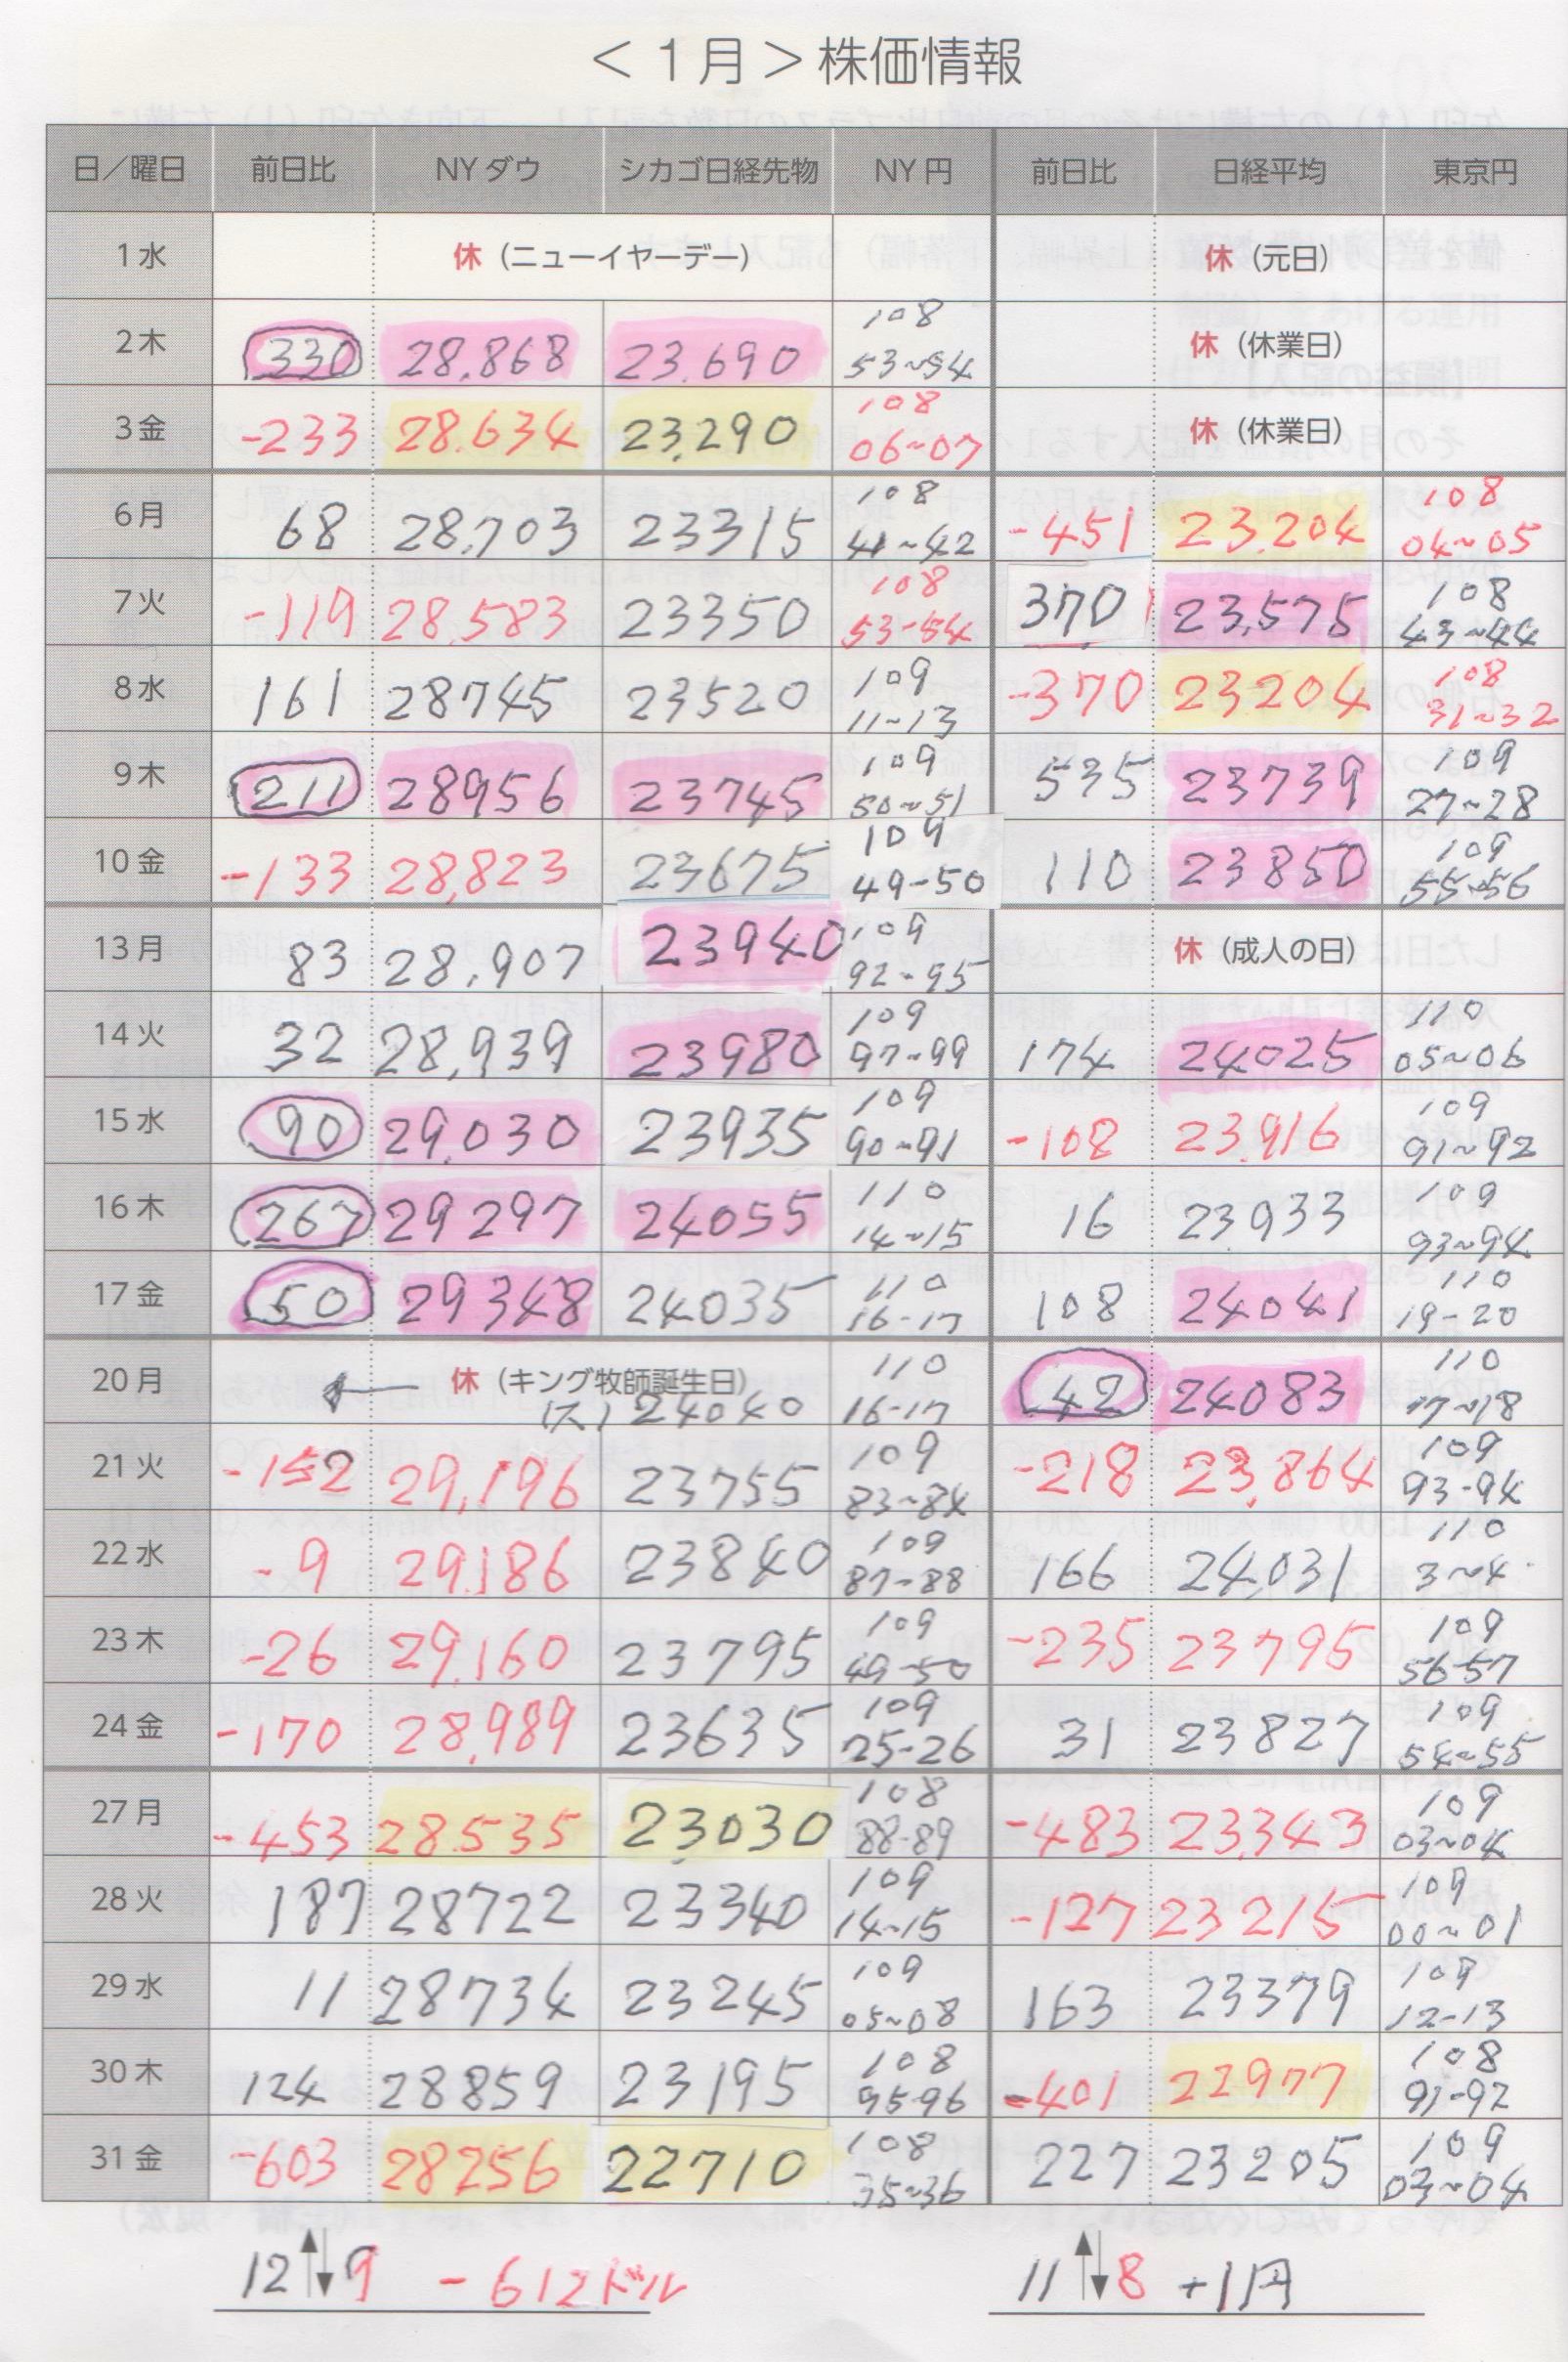 ＜１月＞株価情報
日／曜日 前日比 NYダウ シカゴ日経先物 NY円 前日比 日経平均 東京円
1水 休（ニューイヤーデー） 休（元日）
2木 330 28,868 23,690 108 53~54 休（休業日）
3金 -233 28,634 23,290 108 06~07 休（休業日）
6月 68 28,703 23315 108 41~42 -451 23,204 108 04~05
7火 -119 28,583 23350 108 53-54 370 23,575 108 43~44
8水 161 28745 23520 109 11~13 -370 23204 108 31~32
9木 211 28956 23745 109 50~51 535 23739 109 27~28
10金 -133 28,823 23675 109 49-50 110 23850 109 55~56
13月 83 28,907 23940 109 92-95 休（成人の日）
14火 32 28,939 23980 109 97~99 174 24025 110 05~06
15水 90 29,030 23935 109 90~91 -108 23,916 109 91~92
16木 267 29297 24055 110 14~15 16 23933 109 93~94
17金 50 29348 24035 110 16-17 108 24041 110 19-20
20月 ← 休（キング牧師誕生日） (ス) 24040 110 16-17 42 24083 110 17~18
21火 -152 29,196 23755 109 83~84 -218 23,864 109 93-94
22水 -9 29,186 23840 109 87-88 166 24,031 110 3~4
23木 -26 29,160 23795 109 49-50 -235 23795 109 56-57
24金 -170 28,989 23635 109 25-26 31 23827 109 54~55
27月 -453 28,535 23030 108 88-89 -483 23,343 109 03~04
28火 187 28722 23340 109 14~15 -127 23215 109 00~01
29水 11 28734 23245 109 05~08 163 23379 109 12-13
30木 124 28859 23195 108 95-96 -401 22977 108 91-92
31金 -603 28256 22710 108 35~36 227 23205 109 03~04
12↑↓9 -612ドル 11↑↓8 +1円